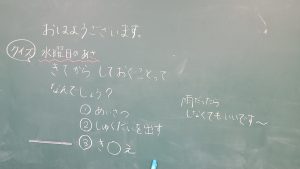 おはようございます。
クイズ 水曜日のあさ
きてから しておくことって
なんでしょう？
① あいさつ
② しゅくだいを出す
③ き〇え
雨だったら
しなくてもいいです〜